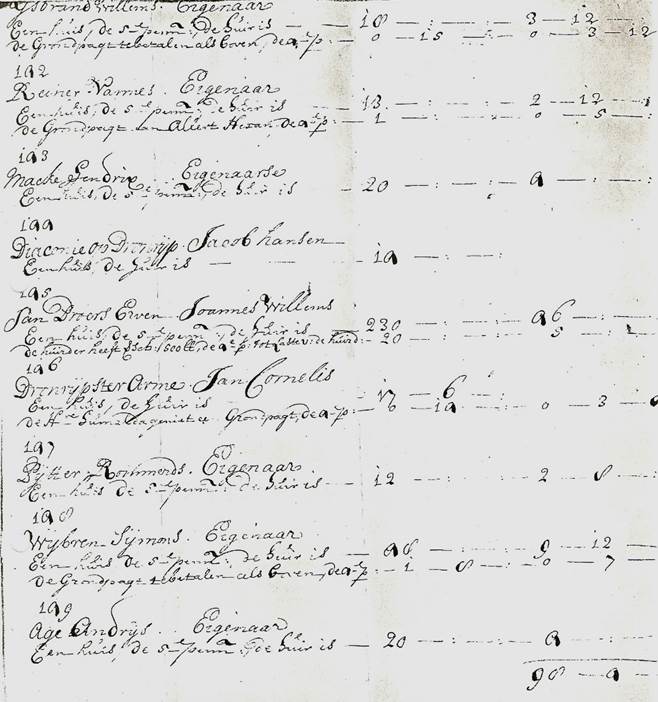 Ysbrand Willems. Eigenaar
Een huis, de 5te penn: de huir is — 18 — : — 3 — 12 —
de Grondpagt te betalen als boven, de 4e p: — 0 — 15 — 0 — 3 — 12
142
Reiner Vannes. Eigenaar
Een huis, de 5te penn: de huir is — 13 — : — 2 — 12 —
de Grondpagt aan Albert de 4e p: — 1 — : — 0 — 5 — :
143
Eigenaarse
Een huis, de 5te penn: de huir is — 20 — : — 4 — :
144
Diaconie op Dronrijp. Jacob hansen
Een huis, de huir is — 14 — : — :
145
Jan Erven. Joannes Willems
Een huis, de 5te penn:, de huir is — 230 — : — 46 — :
de huirder heeft de 4e p: tot laste v: de huird: — 20 — : — 5 — :
146
Dronrijpster Arme. Jan Cornelis
Een huis, de huir is — 17 — 6 —
Grondpagt, de 4e p: — 6 — 14 — 0 — 3 —
147
Pijtter. Eigenaar
Een huis de 5te penn: de huir is — 12 — : — 2 — 8 —
148
Wijbren Sijmons. Eigenaar
Een huis de 5te penn: de huir is — 48 — : — 9 — 12 —
de Grondpagt te betalen als boven, de 4e p: — 1 — 8 — : — 0 — 7 —
149
Age Andrijs. Eigenaar
Een huis, de 5te penn:, de huir is — 20 — : — 4 — :
98 — 4 —